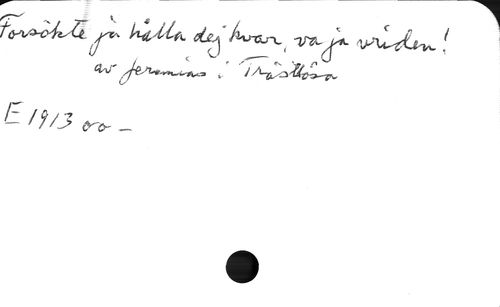 Försökte ja hålla dej kvar, va ja vriden!
av Jeremias i Tröstlösa
E 1913 oo -